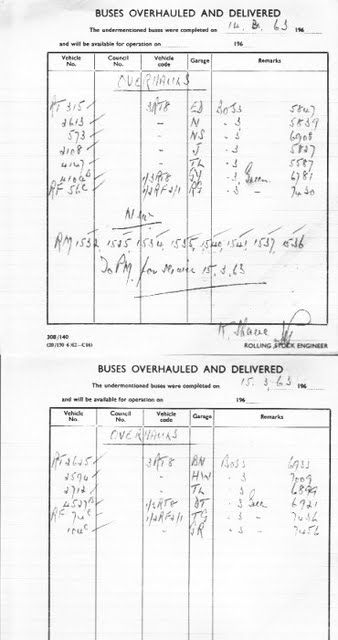 BUSES OVERHAULED AND DELIVERED
The undermentioned buses were completed on 14. 3. 63 196
and will be available for operation on 196
Vehicle No. Council No. Vehicle code Garage Remarks
OVERHAULS
RT 315 3RT8 ED BoSS 5847
2613 - N - 3 5839
573 - NS - 3 6908
2108 - J - 3 5827
4147 - TL - 3 5587
1/3RT8 - 3, Green 6781
RF 56 1/2RF2/1 - 3 - 7430
New
RM 1532 1525, 1534, 1535, 1540, 1541, 1537, 1536
To PM. for service 15.3.63
308/140
ROLLING STOCK ENGINEER
BUSES OVERHAULED AND DELIVERED
The undermentioned buses were completed on 15. 3. 63 196
and will be available for operation on 196
Vehicle No. Council No. Vehicle code Garage Remarks
OVERHAULS
RT 2625 3RT8 BN BoSS 6933
2594 - HW - 3 7009
2712 - TL - 3 6899
4527 1/3RT8 DT - 3 Green 6921
RF 74 1/2RF2/1 TG - 3 - 7436
104 - - 3 - 7256